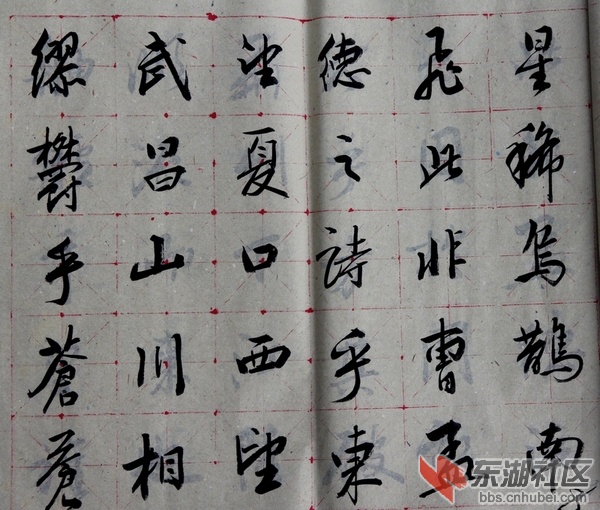 星稀烏鵲南
飛此非曹孟
德之詩乎東
望夏口西望
武昌山川相
繆欝乎蒼蒼
东湖社区
bbs.cnhubei.com